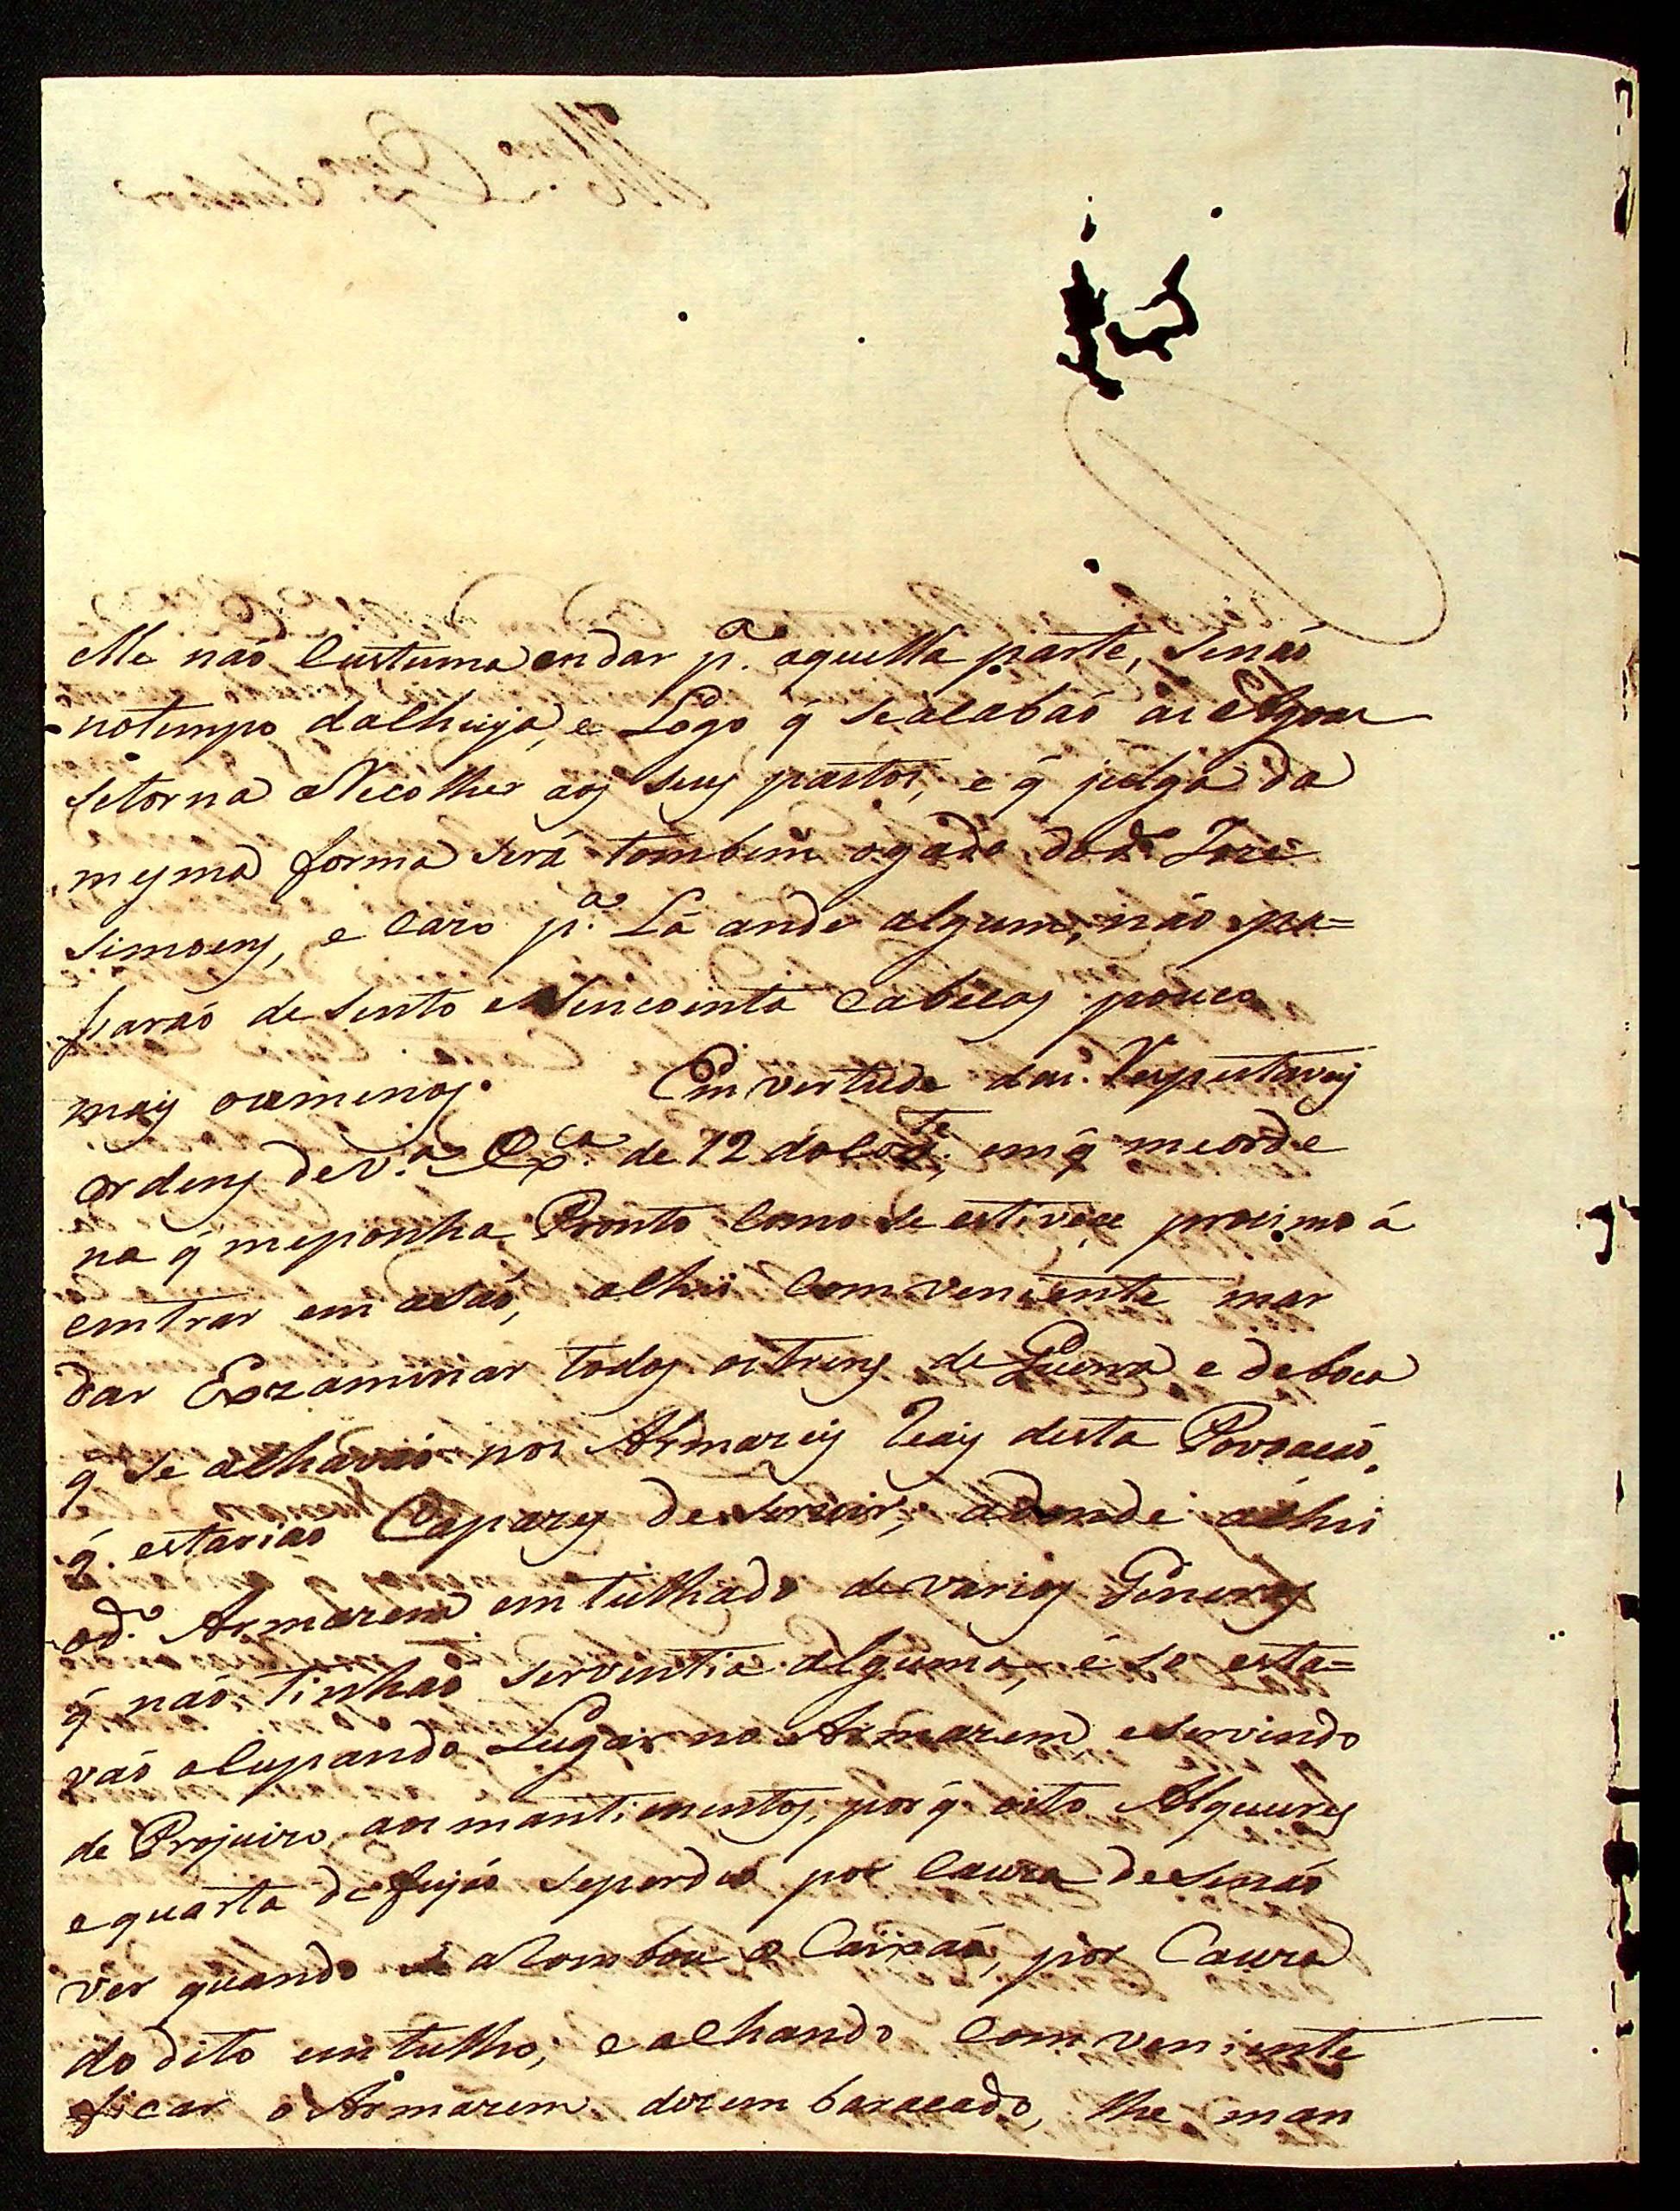 elle não custuma andar p.ª aquella parte, senão
notempo dalheya, e Logo q̃ seacabaõ as Agoas
setorna a Recolher aos seus pastos, e q̃ julga da
mesma forma será tombem ogado do d.º Joze
simoens, e cazo p.ª Lá ande algum, não pa=
ssaraõ de sento e sincointa cabecas pouco
mais oumenos. Em vertude das Respeitaveis
ordens de V.ª Ex.ca de 12 do Cor.te, em q̃ meorde
na q̃ meponha Pronto como se estivece procimo á
emtrar em asaõ, achei comveniente man
dar Exzaminar todos ostrens de Guerra e deboca
q̃ se achavaõ nos Armazeis Reais desta Povoacaõ,
q̃ estariao Capazes de servir, adonde achei
od.º Armazem emtulhado de varios Generos
q̃ naõ tinhaõ serventia alguma, é só esta=
vaõ ocupando Lugar no Armazem eservindo
de Projuizo aos mantimentos, por q̃ oito Alqueires
equarta de fejaõ seperdeo por cauza desenaõ
ver quando se arombou o Caixaõ, por Cauza
do dito emtulho, e achando comveniente
ficar o Armazem dezembaracado, lhe man